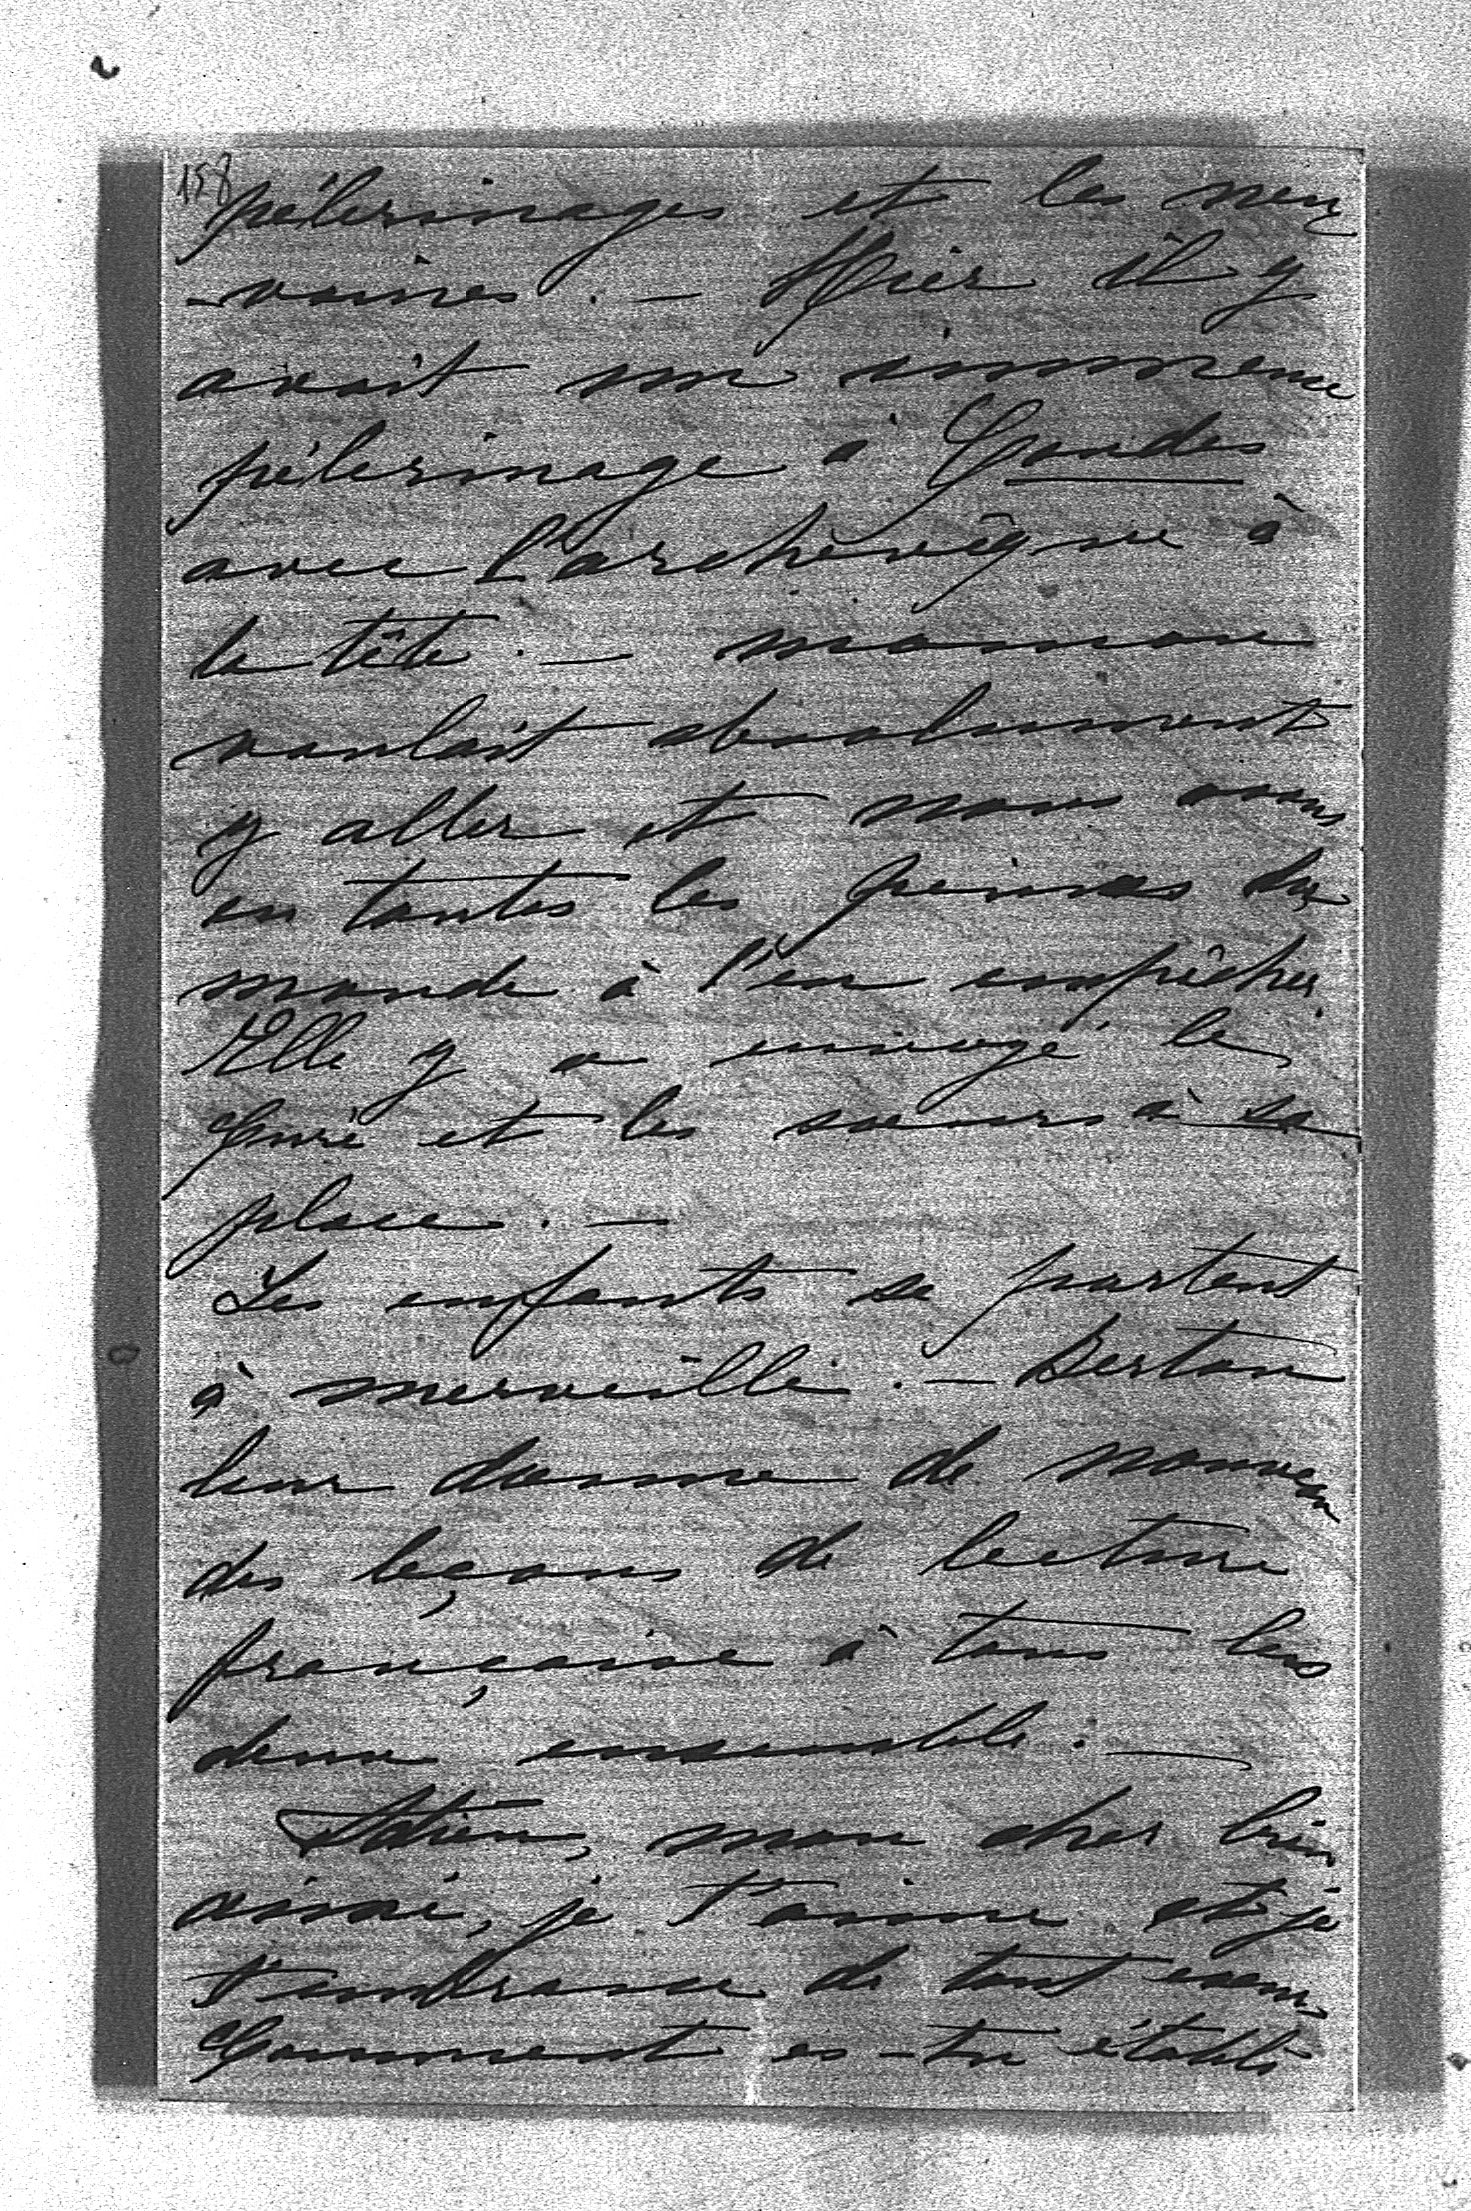 158
pèlerinages et les neu
-vaines. — Hier il y
avait un immense
pèlerinage à Goudes
avec l'archevêque à
la tête. — maman
voulait absolument
y aller et nous avons
eu toutes les peines du
monde à l'en empêcher.
Elle y a envoyé le
Curé et les sœurs à sa
place. —
Les enfants se portent
à merveille. — Berton
leur donne de nouveau
des leçons de lecture
française à tous les
deux ensemble. —
Adieu, mon cher bien
aimé, je t'aime et je
t'embrasse de tout cœur
Comment es-tu établi